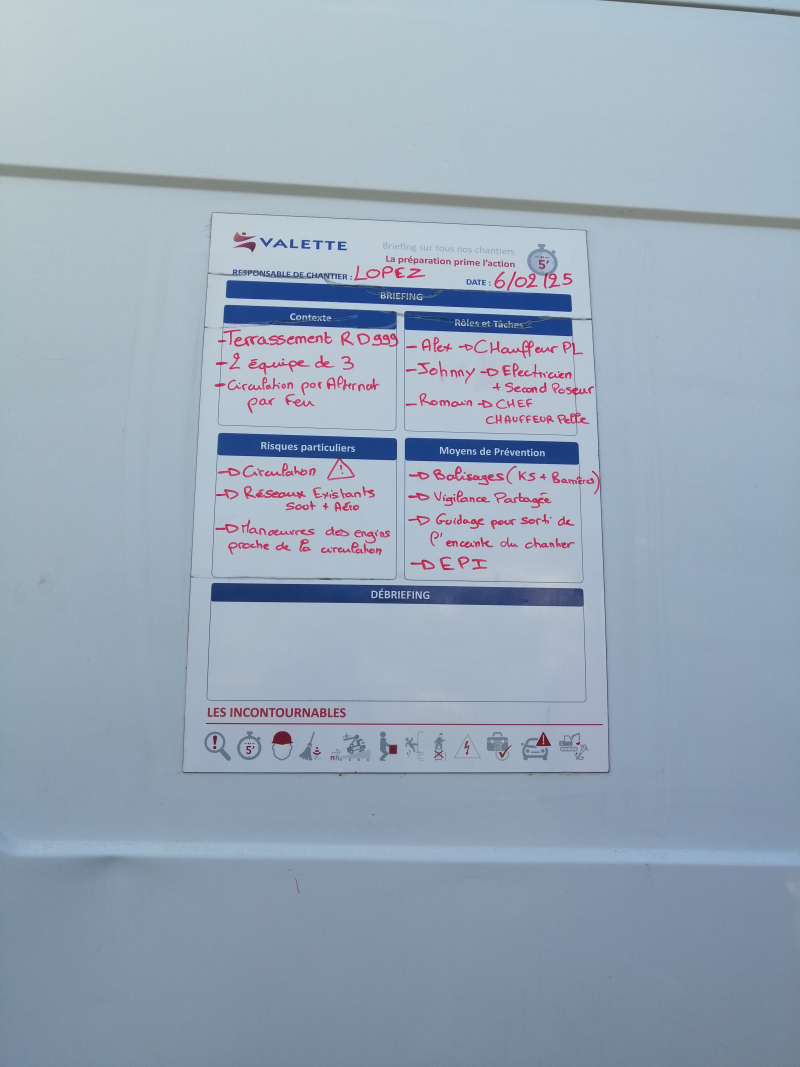 VALETTE
Briefing sur tous nos chantiers
La préparation prime l'action
5'
RESPONSABLE DE CHANTIER : LOPEZ
DATE : 6/02/25
BRIEFING
Contexte
- Terrassement RD999
- 2 équipe de 3
- Circulation par Alternat
par Feu
Rôles et Tâches
- Alex → CHauffeur PL
- Johnny → Electricien
+ Second Poseur
- Romain → CHEF
CHAUFFEUR Pelle
Risques particuliers
→ Circulation !
→ Réseaux Existants
Sout + Aéro
→ Manœuvres des engins
proche de la circulation
Moyens de Prévention
→ Balisages (K5 + Barrières)
→ Vigilance Partagée
→ Guidage pour sorti de
l'enceinte du chantier
→ EPI
DÉBRIEFING
LES INCONTOURNABLES
5'